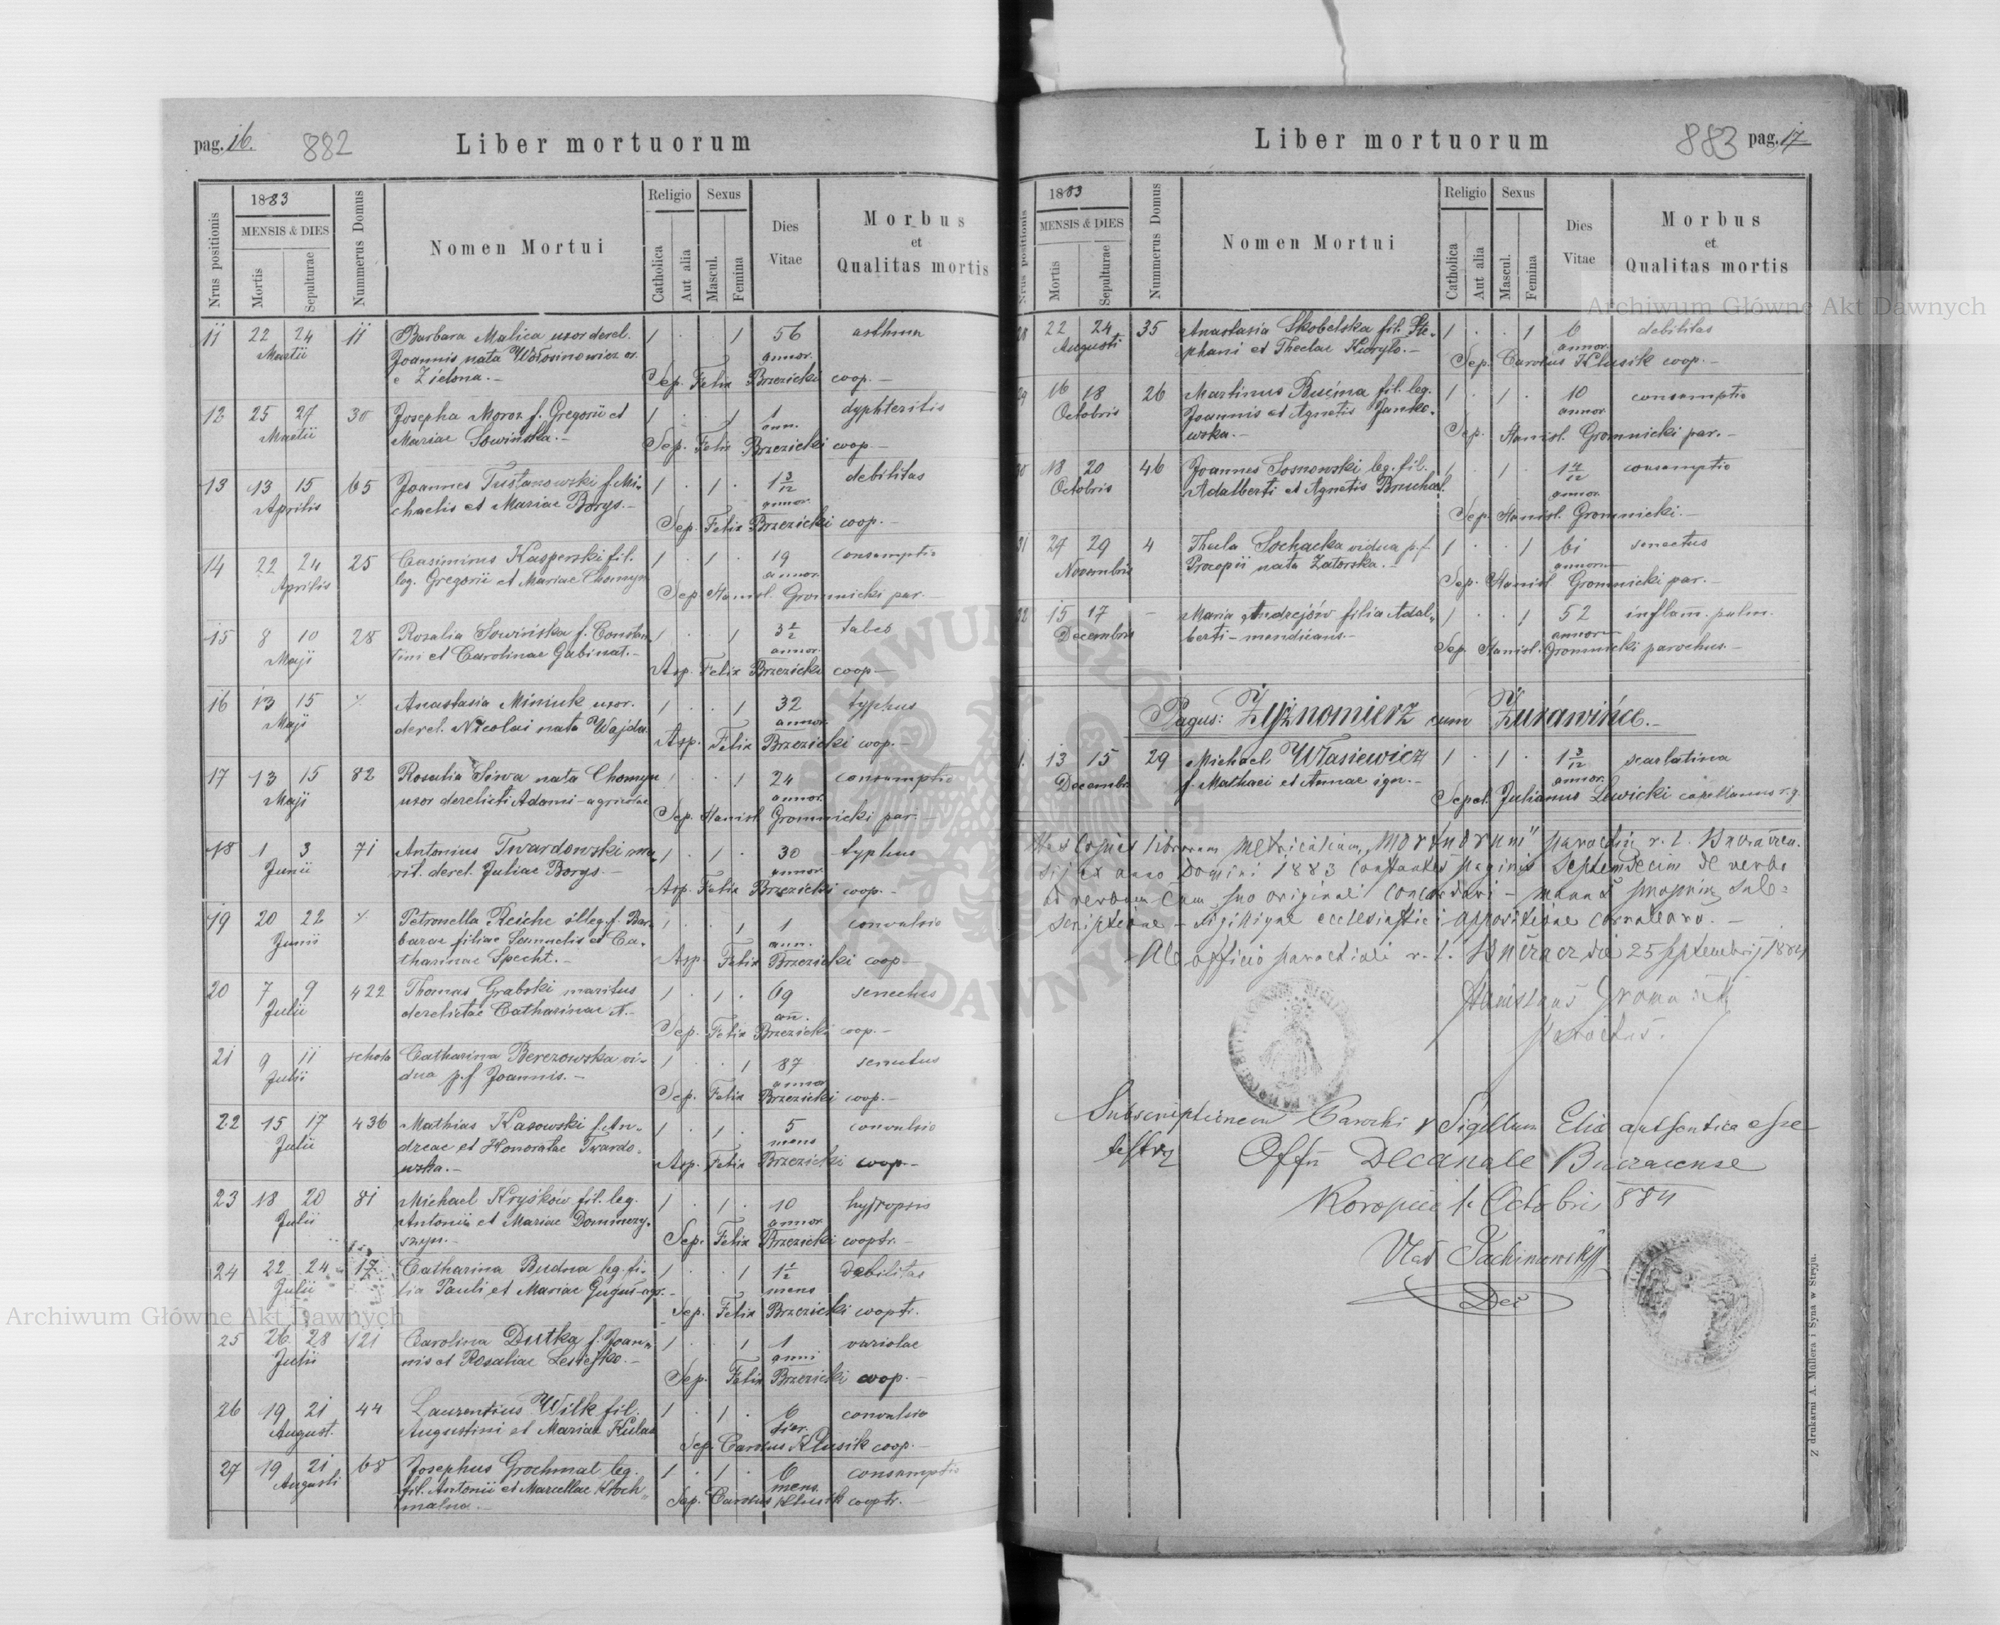 pag. 16.
882
Liber mortuorum
Nrus positionis
1883
MENSIS & DIES
Mortis
Sepulturae
Nummerus Domus
Nomen Mortui
Religio
Catholica
Aut alia
Sexus
Mascul.
Femina
Dies
Vitae
Morbus
et
Qualitas mortis
11 22 24 11 Barbara Malica uxor derel. 1 . . 1 56 asthma
Martii Joannis nata Wołosinowicz or. annor.
e Zielona.- Sep. Felix Brzezicki coop.-
12 25 27 30 Josepha Moroz f. Gregorii et 1 . . 1 1 dyphteritis
Martii Mariae Sowińska.- ann.
Sep. Felix Brzezicki coop.-
13 13 15 65 Joannes Tustanowski f. Mi- 1 . 1 . 1 3/12 debilitas
Aprilis chaelis et Mariae Borys.- annor.
Sep. Felix Brzezicki coop.-
14 22 24 25 Casimirus Kasperski fil. 1 . 1 . 19 consumptio
Aprilis leg. Gregorii et Mariae Chomyn annor.
Sep. Stanisl. Gromnicki par.
15 8 10 28 Rozalia Sowińska f. Constan 1 . . 1 3 1/2 tabes
Maji tini et Carolinae Gabinat.- annor.
Asp. Felix Brzezicki coop-
16 13 15 Anastasia Miniuk uxor. 1 . . 1 32 typhus
Maji derel. Nicolai nata Wajda annor.
Asp. Felix Brzezicki coop.-
17 13 15 82 Rosalia Siwa nata Chomyn 1 . . 1 24 consumptio
Maji uxor derelicti Adami - agricolae annor.
Sep. Stanisl. Gromnicki par.-
18 1 3 71 Antonius Twardowski ma 1 . 1 . 30 typhus
Junii rit. derel. Juliae Borys.- annor.
Asp. Felix Brzezicki coop.-
19 20 22 Petronella Reiche illeg. f. Bar 1 . . 1 1 convulsio
Junii barae filiae Samuelis et Ca- ann.
tharinae Specht.- Asp. Felix Brzezicki coop-
20 7 9 422 Thomas Grabski maritus 1 . 1 . 69 senectus
Julii derelictae Catharinae
Sep. Felix Brzezicki coop.-
21 9 11 Catharina Berezowska vi- 1 . . 1 87 senectus
Julii dua p.f Joannis.-
Sep. Felix Brzezicki coop.-
22 15 17 436 Mathias Kasowski f. An- 1 . 1 . 5 convulsio
Julii dreae et Honoratae Twardo- mens
wska.- Asp. Felix Brzezicki coop.-
23 18 20 81 Michael Kryśków fil. leg. 1 . 1 . 10 hydropsis
Julii Antonii et Mariae annor
Sep. Felix Brzezicki cooptr.-
24 22 24 17 Catharina Budna lg. fi- 1 . . 1 1 1/2 debilitas
Julii lia Pauli et Mariae mens
Sep. Felix Brzezicki cooptr.
25 26 28 121 Carolina Dutka f. Joan- 1 . . 1 1 variolae
Julii nis et Rosaliae anni
Sep. Felix Brzezicki coop.-
26 19 21 44 Laurentius Wilk fil. 1 . 1 . 6 convulsio
August. Augustini et Mariae Kulas dier.
Sep. Carolus Klusik coop.-
27 19 21 68 Josephus Grochmal leg. 1 . 1 . 6 consumptio
Augusti fil. Antonii et Marcellae Kroch- mens.
malna.- Sep. Carolus Klusik cooptr.-
Liber mortuorum
883
pag. 17
Nrus positionis
1883
MENSIS & DIES
Mortis
Sepulturae
Nummerus Domus
Nomen Mortui
Religio
Catholica
Aut alia
Sexus
Mascul.
Femina
Dies
Vitae
Morbus
et
Qualitas mortis
28 22 24 35 Anastasia Skobelska fil. Ste- 1 . . 1 6 debilitas
Augusti phani et Theclae Kuryło.- annor.
Sep. Carolus Klusik coop.-
29 16 18 26 Martinus Bucima fil. leg. 1 . 1 . 10 consumptio
Octobris Joannis et Agnetis Janko- annor
wska.- Sep. Stanisl. Gromnicki par.-
30 18 20 46 Joannes Sosnowski leg. fil. 1 . 1 . 1 4/12 consumptio
Octobris Adalberti et Agnetis Bruchal. annor.
Sep. Stanisl. Gromnicki.-
31 27 29 4 Thecla Sochacka vidua p.f 1 . . 1 61 senectus
Novembris Procopii nata Zatorska.- annor
Sep. Stanisl. Gromnicki par.-
32 15 17 - Maria Andrejów filia Adal- 1 . . 1 52 inflam. pulm.
Decembris berti - mendicans.- annor
Sep. Stanisl. Gromnicki parochus.-
Pagus: Żyżnomierz cum Żurawińce.-
1. 13 15 29 Michael Własiewicz 1 . 1 . 1 3/12 scarlatina
Decembr. f. Mathaei et Annae ign.- annor.
Sepel. Julianus Lewicki capellanus r.g.
Has copias librorum metricalium "Mortuorum" parochiae r. l.
ex anno Domini 1883 constantes paginis Septemdecim de verbo
ad verbum cum suo originali concordari - manus propriae sub-
scriptione - sigillique ecclesiastici appositione corroboro.-
Ab officio parochiali r. l. Buczacz die 25 Septembris 1884
Stanislaus Gromnicki
parochus.
Subscriptionem Parochi & Sigillum authentica esse
testatur Offm Decanale Buczacense
Koropiec 1. Octobris 884
Vlad
Dec
Z drukarni A. Müllera i Syna w Stryju.
Archiwum Główne Akt Dawnych
Archiwum Główne Akt Dawnych
ARCHIWUM GŁÓWNE AKT DAWNYCH